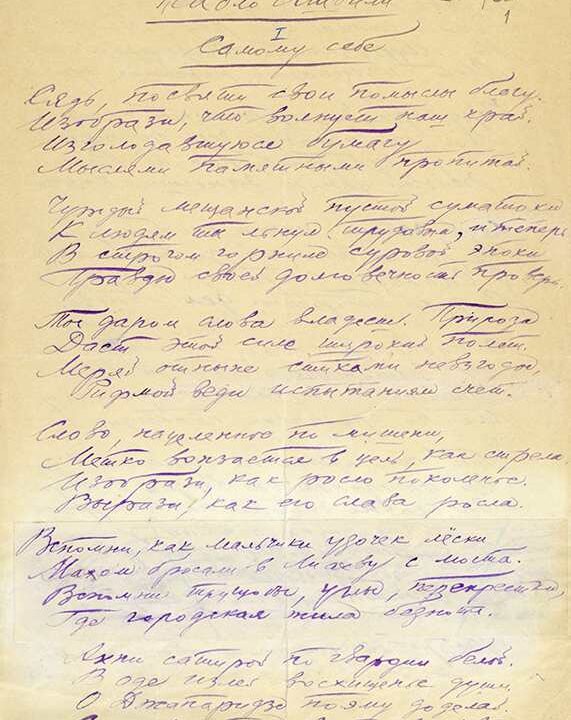 Паоло Яшвили
1
I
Самому себе
Сядь, посвяти свои помыслы благу.
Изобрази, что волнует наш край.
Изголодавшуюся бумагу
Мыслями памятными пропитай.
Чуждый мещанской пустой суматохи
К людям ты льнул трудовым, и теперь
В строгом горниле суровой эпохи
Правду своей долговечности проверь.
Ты даром слова владеешь. Природа
Даст этой силе широкий полет.
Меряй отныне стихами невзгоды,
Рифмой веди испытаниям счет.
Слово, нацеленное по мишени,
Метко вонзается в цель, как стрела.
Изобрази, как росло поколенье.
Вырази, как его слава росла.
Вспомни, как мальчики удочек лёски
Махом бросали в Лиахву с моста.
Вспомни трущобы, углы, перекрестки,
Где городская жила беднота.
Ахни сатирой по гвардии белой.
В оде излей восхищенье души.
О Джапаридзе поэму доделай.